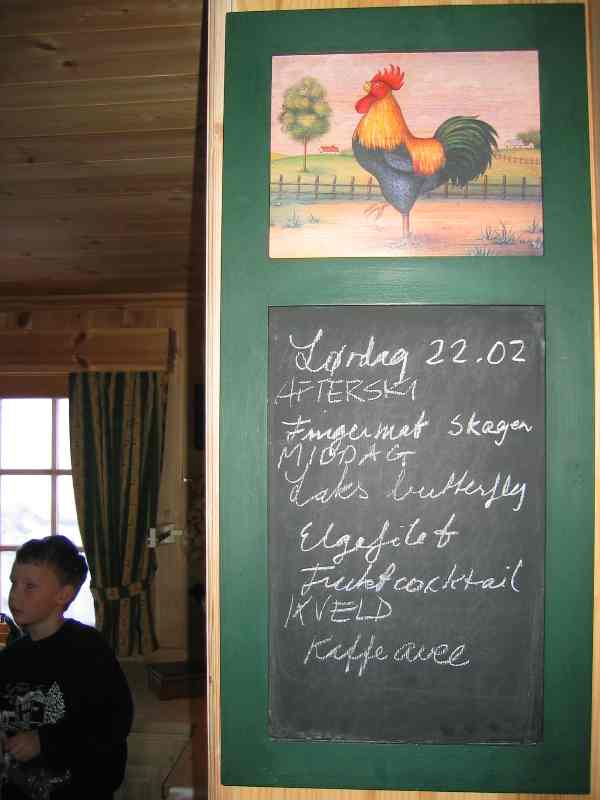 Lørdag 22.02
AFTERSKI
Fingermat skagen
MIDDAG
Laks butterfly
Elgefilet
Fruktcocktail
KVELD
Kaffe avec